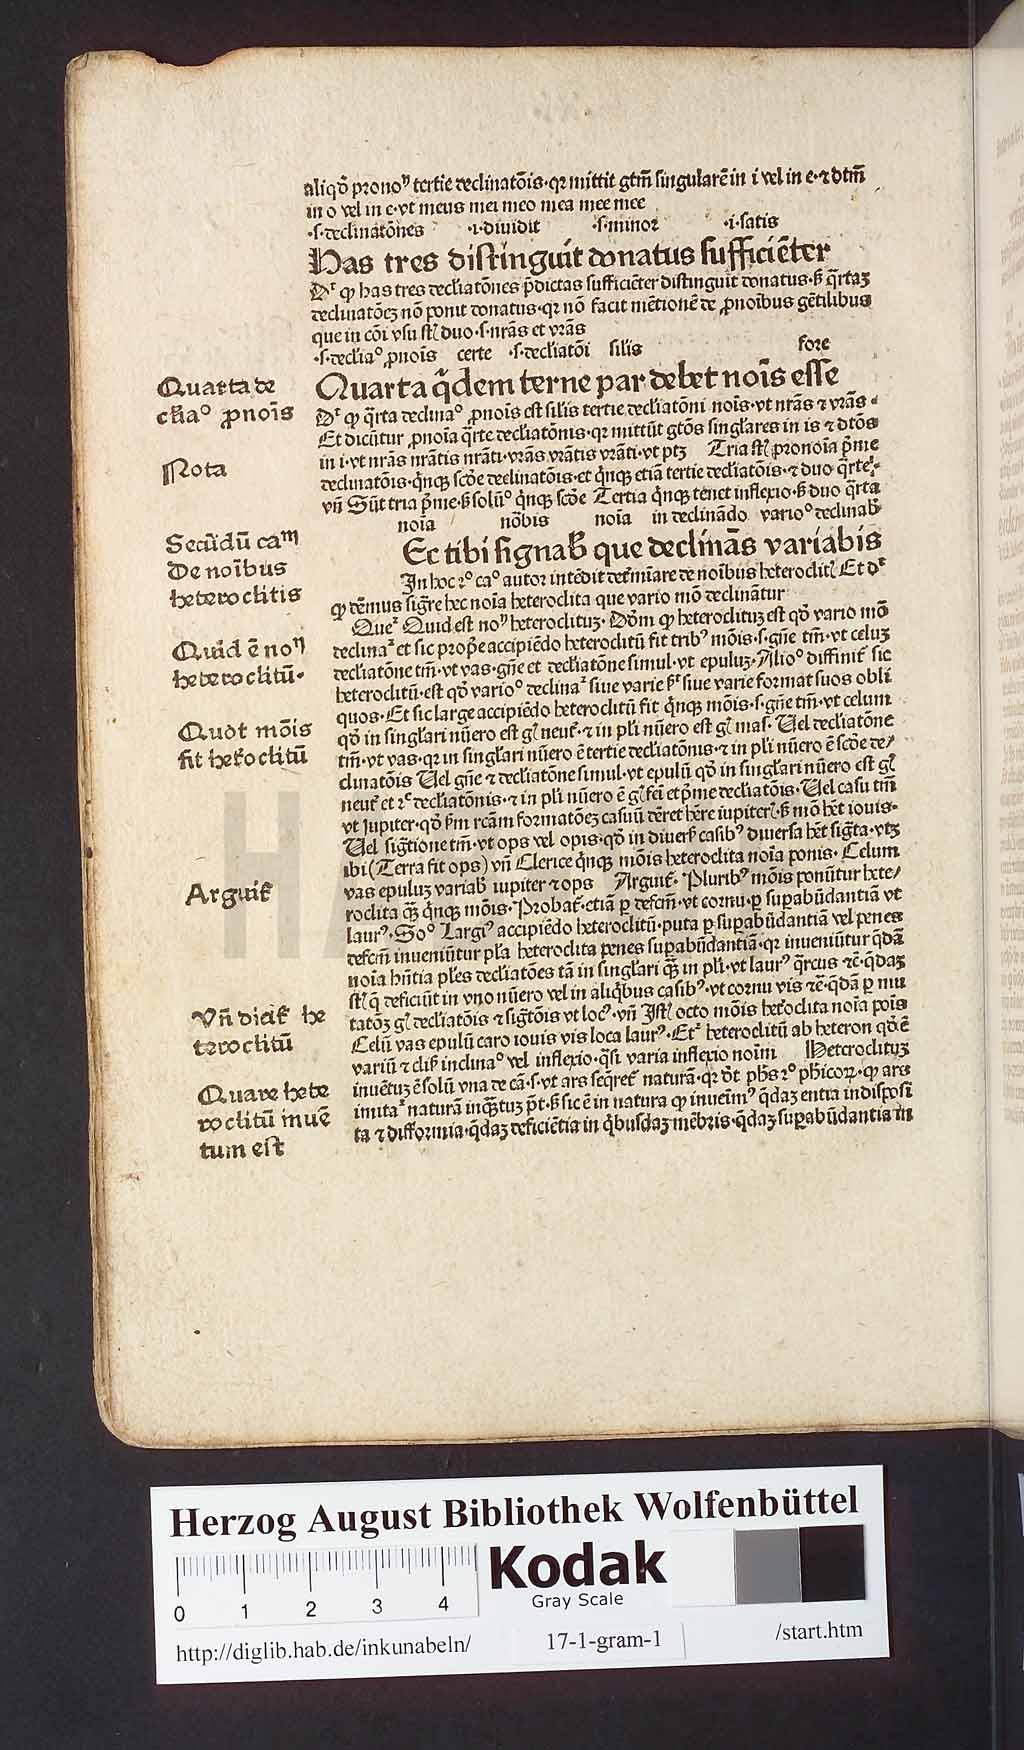 aliqd̄ pronoꝰ tertie declinatōis·qꝛ mittit gtm̄ singularē in i vel in e·⁊ dtm̄
in o vel in e·vt meus mei meo mea mee mee
·s·declinatōnes ·i·diuidit ·s·minor ·i·satis
Has tres distinguit donatus sufficiēter
Dʳ ꝙ has tres decliatōnes p̄dictas sufficiēter distinguit donatus·s̄ q̄rtaꝫ
declinatōeꝫ nō ponit donatus·qꝛ nō facit mētionē de ꝓnoībus gētilibus
que in cōi vsu sūt duo·s·nrās et vrās
·s·decliaᵒ ꝓnoīs certe ·s·decliatōi silis fore
Quarta de
cliaᵒ ꝓnoīs
Quarta q̄dem terne par debet noīs esse
Dʳ ꝙ q̄rta declinaᵒ ꝓnoīs est silis tertie decliatōni noīs·vt nrās ⁊ vrās·
Et dicūtur ꝓnoīa q̄rte decliatōnis·qꝛ mittūt gtōs singlares in is ⁊ dtōs
in i·vt nrās nrātis nrāti·vrās vrātis vrāti·vt ptꝫ Tria sūt pronoīa p̄me
Nota
declinatōis·q̄nqꝫ scōe declinatōis·et q̄nqꝫ etiā tertie decliatōis·⁊ duo q̄rte·
vn̄ Sūt tria p̄me·s̄ solūᵒ q̄nqꝫ scōe Tertia q̄nqꝫ tenet inflexio·s̄ duo q̄rta
noīa nōbis noīa in declinādo varioᵒ declinab̄
Secūdū caᵐ
De noībus
heteroclitis
Ec tibi signab̄ que declinās variabis
In hoc 2ᵒ caᵒ autor intēdit det̄mīare de noībus heteroclitꝭ Et dʳ
ꝙ dēmus sigr̄e hec noīa heteroclita que vario mō declinātur
Queʳ Quid est noⁿ heteroclituꝫ· Dōm ꝙ heteroclituꝫ est qd̄ vario mō
Quid ē noⁿ
heteroclitū·
declinaʳ et sic prop̄e accipiēdo heteroclitū fit tribꝰ mōis·s·gn̄e tm̄·vt celuꝫ
decliatōne tm̄·vt vas·gn̄e et decliatōne simul·vt epuluꝫ·Alioᵒ diffinit̄ sic
heteroclitū·est qd̄ varioᵒ declinaʳ siue varie fʳ siue varie format suos obli
quos·Et sic large accipiēdo heteroclitū fit q̄nqꝫ mōis·s·gn̄e tm̄·vt celum
Quot mōis
fit het̄oclitū
qd̄ in singlari nūero est gꝭ neut̄·⁊ in pli nūero est gꝭ mas· Uel decliatōne
tm̄·vt vas·qꝛ in singlari nūero ē tertie decliatōnis·⁊ in pli nūero ē scōe de/
clinatōis Uel gn̄e ⁊ decliatōne simul·vt epulū qd̄ in singlari nūero est gꝭ
neut̄ et 2ᵉ decliatōnis·⁊ in pli nūero ē gꝭ fēi et p̄me decliatōis·Uel casu tm̄
vt Jupiter·qd̄ s̄m rcām formatōeꝫ casuū dēret hēre iupiterꝭ·s̄ mō hēt iouis·
Uel sigtione tm̄·vt ops vel opis·qd̄ in diuers̄ casibꝰ diuersa hēt sigta·vtꝫ
ibi (Terra fit ops) vn̄ Clerice q̄nqꝫ mōis heteroclita noīa ponis· Celum
vas epuluꝫ variab̄ iupiter ⁊ ops Arguit̄· Pluribꝰ mōis ponūtur hete/
Arguit̄
roclita qꝫ q̄nqꝫ mōis·Probat̄·etiā ꝑ defcm̄·vt cornu·ꝑ suꝑabūdantiā vt
laurꝰ·Soᵒ Largiꝰ accipiēdo heteroclitū·puta ꝑ suꝑabūdantiā vel penes
defcm̄ inueniūtur pl̄a heteroclita penes suꝑabūdantiā·qꝛ inueniūtur q̄dā
noīa hn̄tia pl̄es decliatōes tā in singlari qꝫ in pli·vt laurꝰ q̄rcus ⁊ē·q̄daꝫ
sūt q̄ deficiūt in vno nūero vel in aliq̄bus casibꝰ·vt cornu vis ⁊ē·q̄dā ꝑ mu
tatōꝫ gꝭ decliatōis ⁊ sigtōis vt locꝰ·vn̄ Istꝭ octo mōis het̄oclita noīa pois
Vn̄ dicit̄ he
teroclitū
Celū vas epulū caro iouis vis loca laurꝰ·Etʳ heteroclitū ab heteron qd̄ ē
variū ⁊ clisꝭ inclinaᵒ vel inflexio·q̄si varia inflexio noīm Heteroclituꝫ
Quare hete
roclitū inuē
tum est
inuētuꝫ ē solū vna de cā·s·vt ars seq̄ret̄ naturā·qꝛ dt̄ phs̄ 2ᵒ phīcoꝝ·ꝙ ars
imitaʳ naturā inq̄tuꝫ p̄t·s̄ sic ē in natura ꝙ inueīmꝰ q̄daꝫ entia indisposi
ta ⁊ difformia·q̄daꝫ deficiētia in q̄busdaꝫ mēbris·q̄daꝫ suꝑabūdantia in
Herzog August Bibliothek Wolfenbüttel
Kodak
Gray Scale
0 1 2 3 4
http://diglib.hab.de/inkunabeln/ 17-1-gram-1 /start.htm